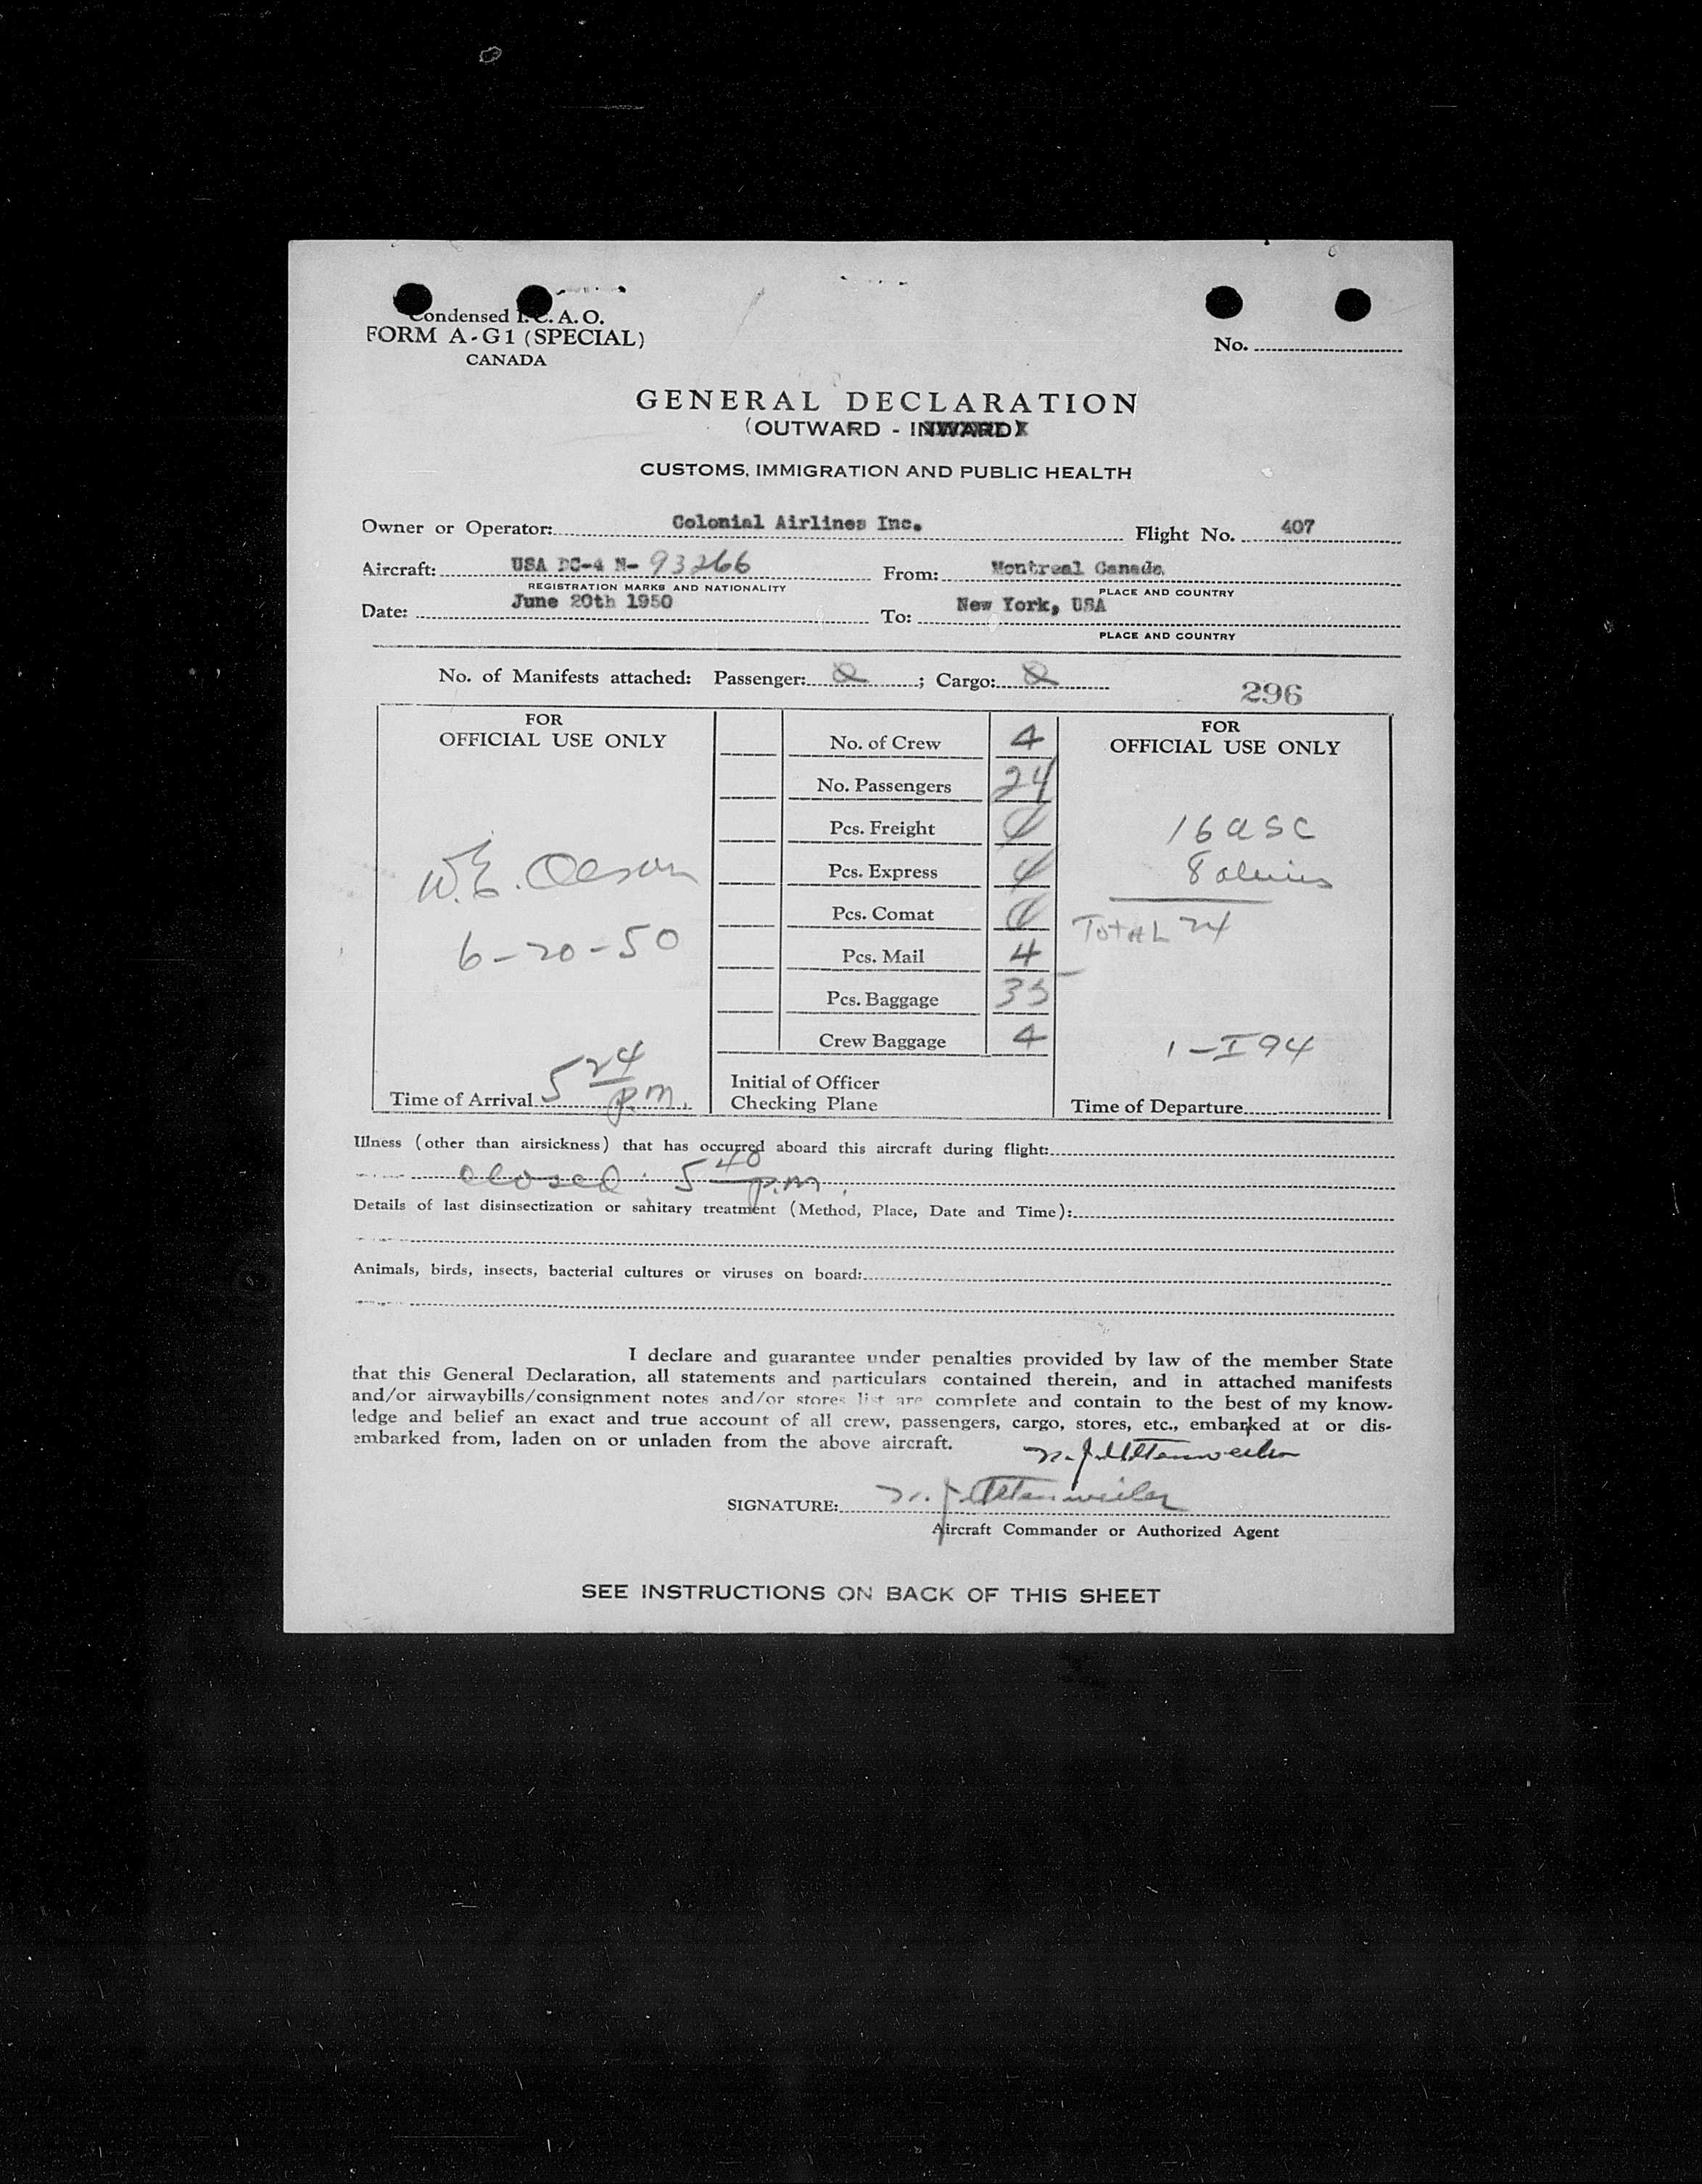 Condensed I.C.A.O.
FORM A-G1 (SPECIAL)
CANADA
No.
GENERAL DECLARATION
(OUTWARD - INWARD)
CUSTOMS, IMMIGRATION AND PUBLIC HEALTH
Owner or Operator: Colonial Airlines Inc. Flight No. 407
Aircraft: USA DC-4 N- 93266 From: Montreal Canada
REGISTRATION MARKS AND NATIONALITY PLACE AND COUNTRY
Date: June 20th 1950 To: New York, USA
PLACE AND COUNTRY
No. of Manifests attached: Passenger: ; Cargo:
296
FOR
OFFICIAL USE ONLY
W.E. Olson
6-20-50
Time of Arrival 5 24 p.m.
No. of Crew 4
No. Passengers 24
Pcs. Freight
Pcs. Express
Pcs. Comat
Pcs. Mail 4
Pcs. Baggage 35
Crew Baggage 4
Initial of Officer
Checking Plane
FOR
OFFICIAL USE ONLY
16 USC
8 aliens
Total 24
1-I94
Time of Departure
Illness (other than airsickness) that has occurred aboard this aircraft during flight:
closed: 5 40 p.m.
Details of last disinsectization or sanitary treatment (Method, Place, Date and Time):
Animals, birds, insects, bacterial cultures or viruses on board:
I declare and guarantee under penalties provided by law of the member State
that this General Declaration, all statements and particulars contained therein, and in attached manifests
and/or airwaybills/consignment notes and/or stores list are complete and contain to the best of my know-
ledge and belief an exact and true account of all crew, passengers, cargo, stores, etc., embarked at or dis-
embarked from, laden on or unladen from the above aircraft.
SIGNATURE:
Aircraft Commander or Authorized Agent
SEE INSTRUCTIONS ON BACK OF THIS SHEET